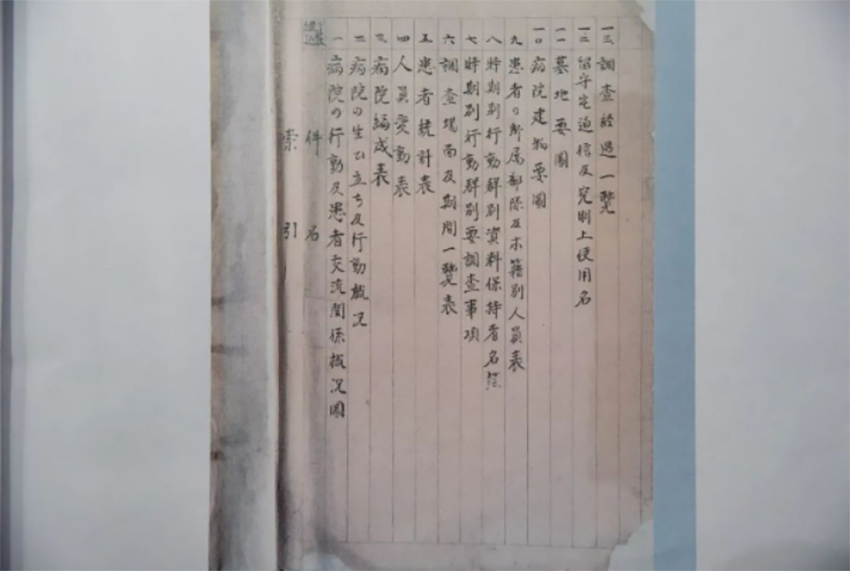 索引
件名
一 病院の行動及患者交流関係概況圖
二 病院の生ひ立ち及行動概況
三 病院編成表
四 人員変動表
五 患者統計表
六 調査場面及期間一覧表
七 時期別行動群別要調査事項
八 時期別行動群別資料保持者名簿
九 患者の所属部隊及本籍別人員表
一〇 病院建物要圖
一一 墓地要圖
一二 留守宅通信及究明上使用名
一三 調査経過一覧